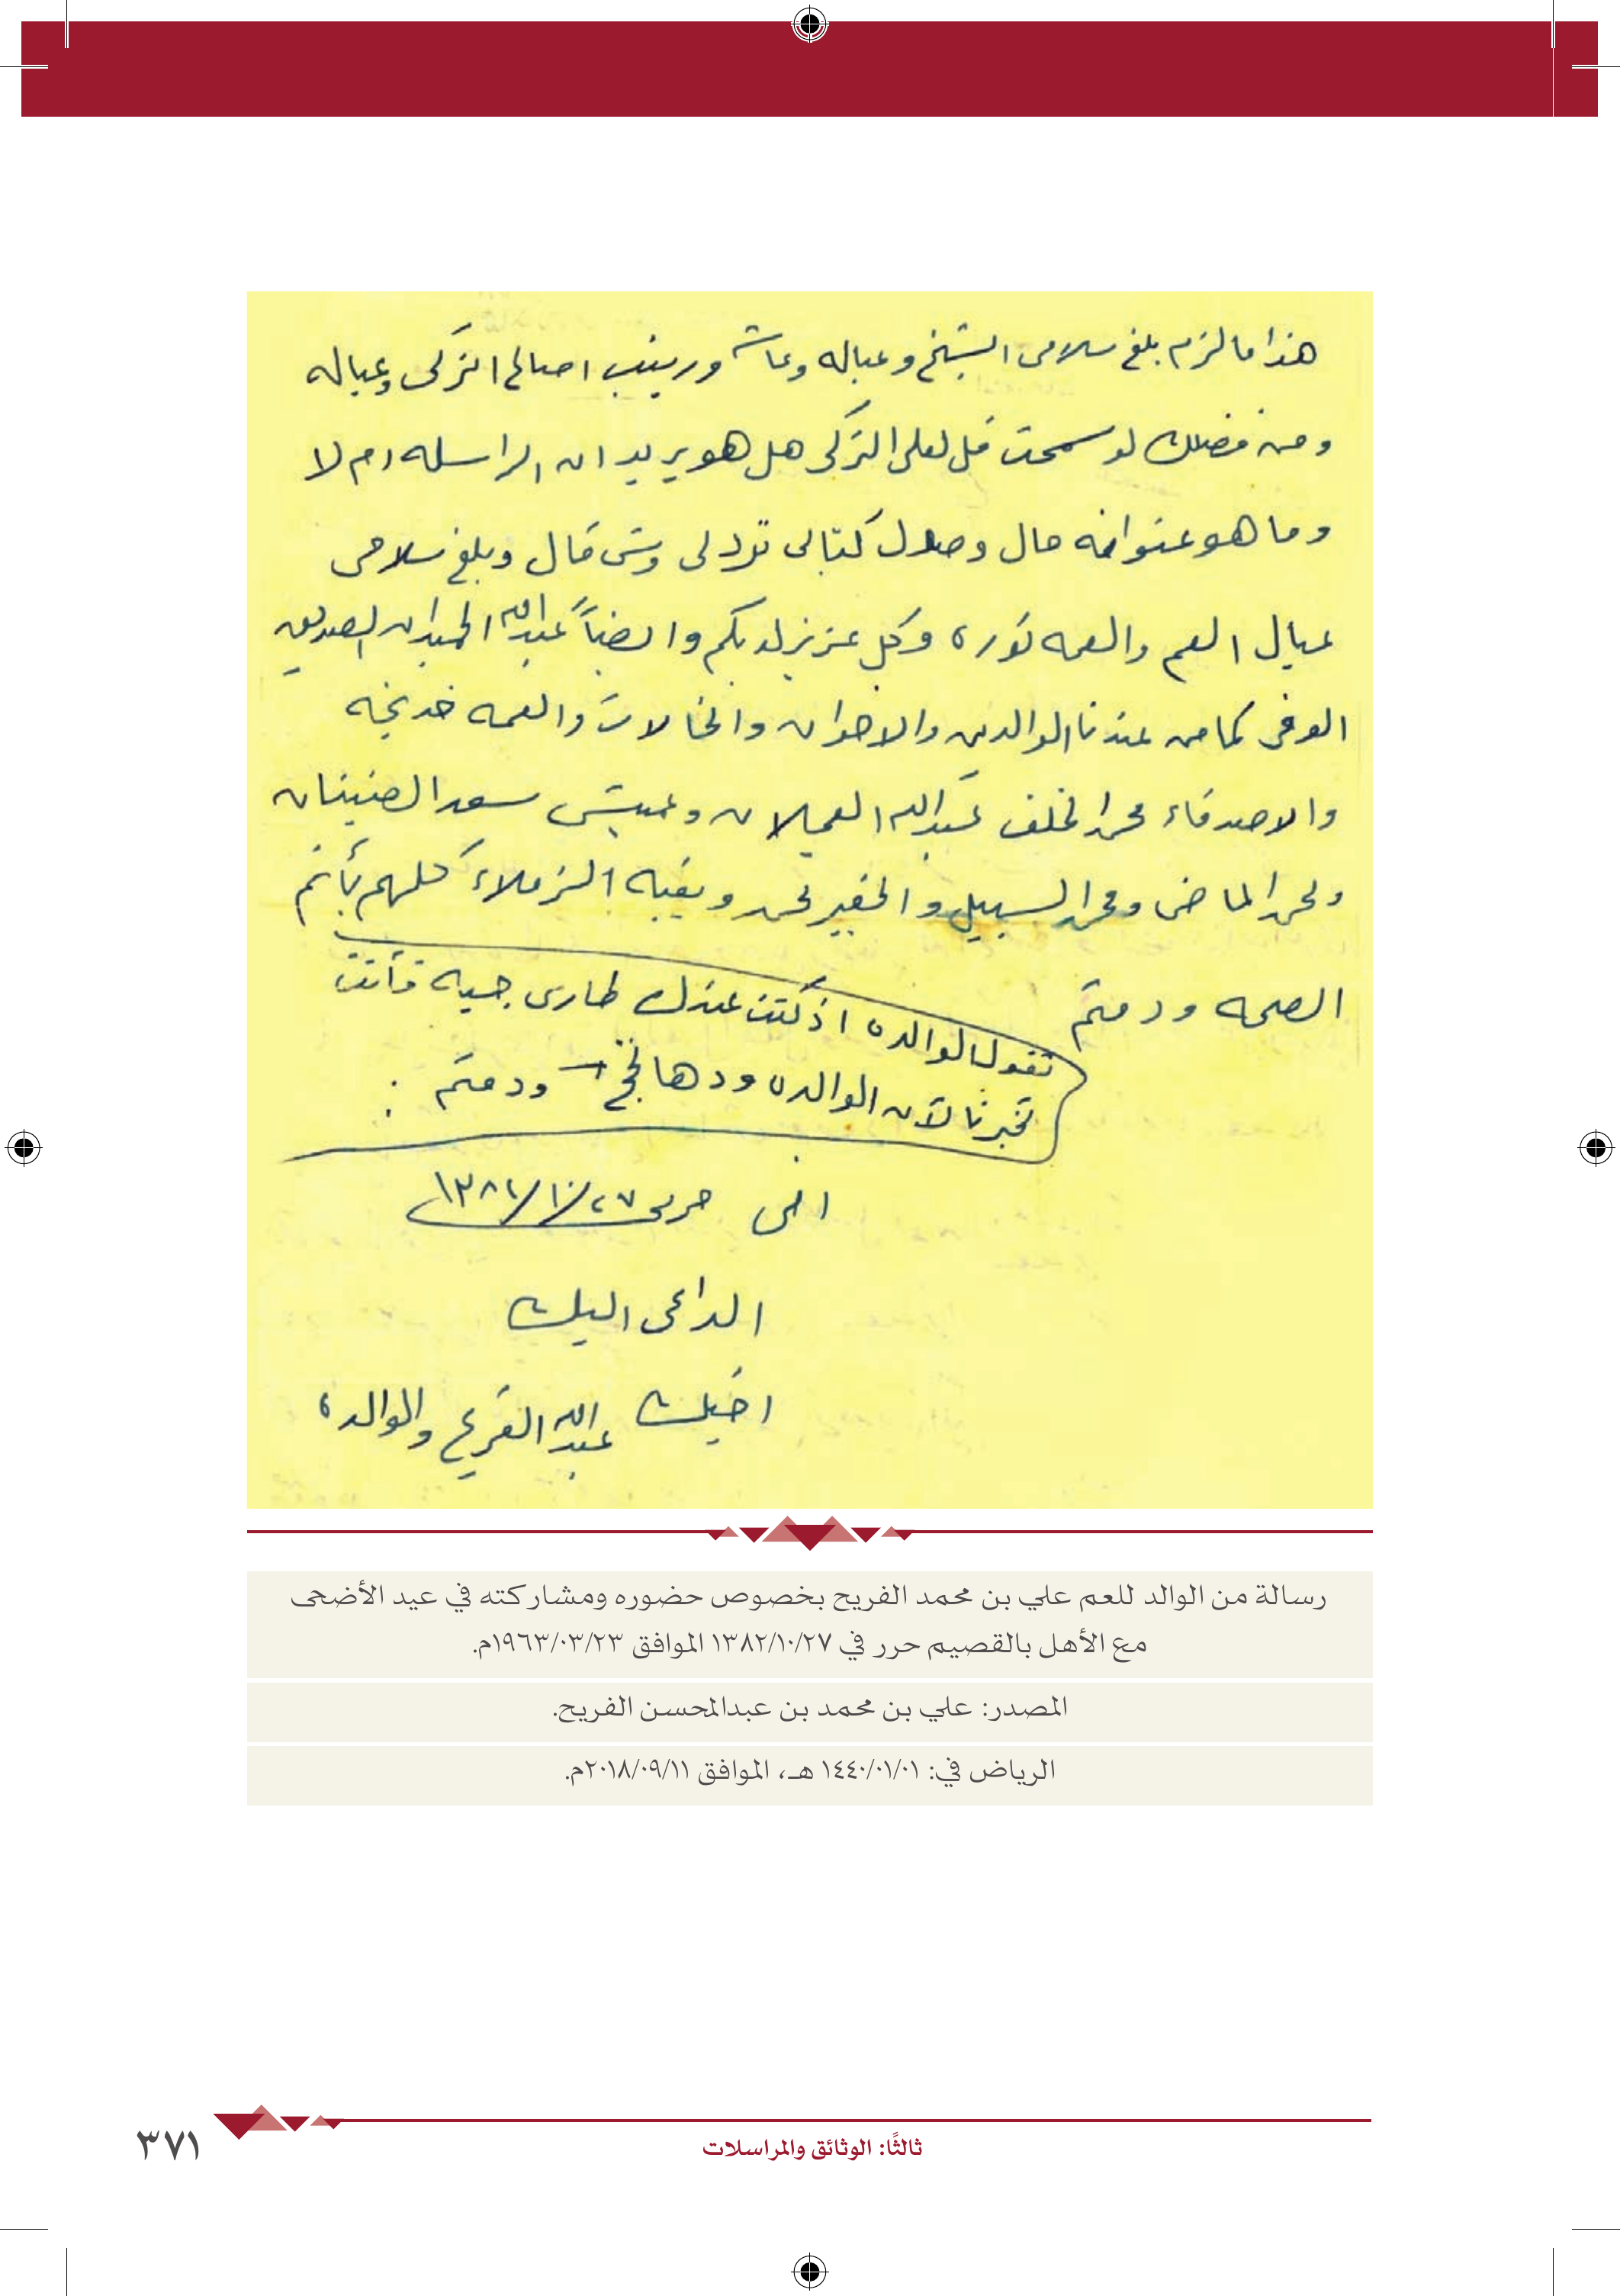 هذا ما لزم بلغ سلامى الشيخ وعياله وعاشه وزينب اصالح التركى وعياله
ومن فضلك لو سمحت قل لعلى التركى هل هو يريد ان اراسله ام لا
وما هو عنوانه حال وصول كتابى ترد لى وش قال وبلغ سلامى
عيال العم والعمه نوره وكل عزيز لديكم وايضاً عبدالله الحميدان الصديق
الوفى كما من عندنا الوالدين والاخوان والخالات والعمه خديجه
والاصدقاء محمد الخلف عبدالله العجلان وعميش سعد الصنيتان
ومحمد الماضى ومحمد السبيل والخفير محمد وبقية الزملاء كلهم بأتم
الصحه ودمتم
تقول الوالده اذ كنت عندك طارى جيه فأنت
تخبرنا لآن الوالده ودها تحج ودمتم :
حرر فى ١٣٨٢/١٠/٢٧
الداعى اليك
اخيك عبدالله الفريح والوالده
رسالة من الوالد للعم علي بن محمد الفريح بخصوص حضوره ومشاركته في عيد الأضحى
مع الأهل بالقصيم حرر في ١٣٨٢/١٠/٢٧ الموافق ١٩٦٣/٠٣/٢٣م.
المصدر: علي بن محمد بن عبدالمحسن الفريح.
الرياض في: ١٤٤٠/٠١/٠١ هـ، الموافق ٢٠١٨/٠٩/١١م.
ثالثًا: الوثائق والمراسلات
٣٧١